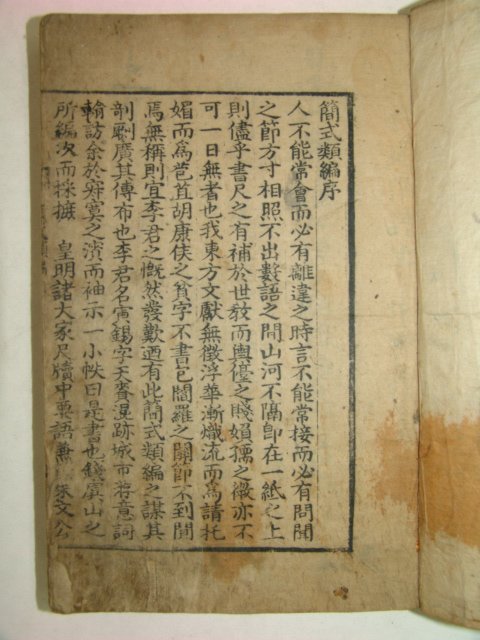 簡式類編序
人不能常會而必有離違之時言不能常接而必有問聞
之節方寸相照不出數語之間山河不隔卽在一紙之上
則儘乎書尺之有補於世敎而輿儓之賤嬰孺之微亦不
可一日無者也我東方文獻無徵浮華漸熾流而爲請托
媚而爲苞苴胡康侯之貧字不書包閻羅之關節不到聞
焉無稱則宜李君之慨然發歎迺有此簡式類編之謀其
剞劂廣其傳布也李君名寅錫字天賚混跡城市着意詞
翰訪余於寂寞之濱而袖示一小帙曰是書也錢虞山之
所編次而採摭 皇明諸大家尺牘中要語兼 朱文公